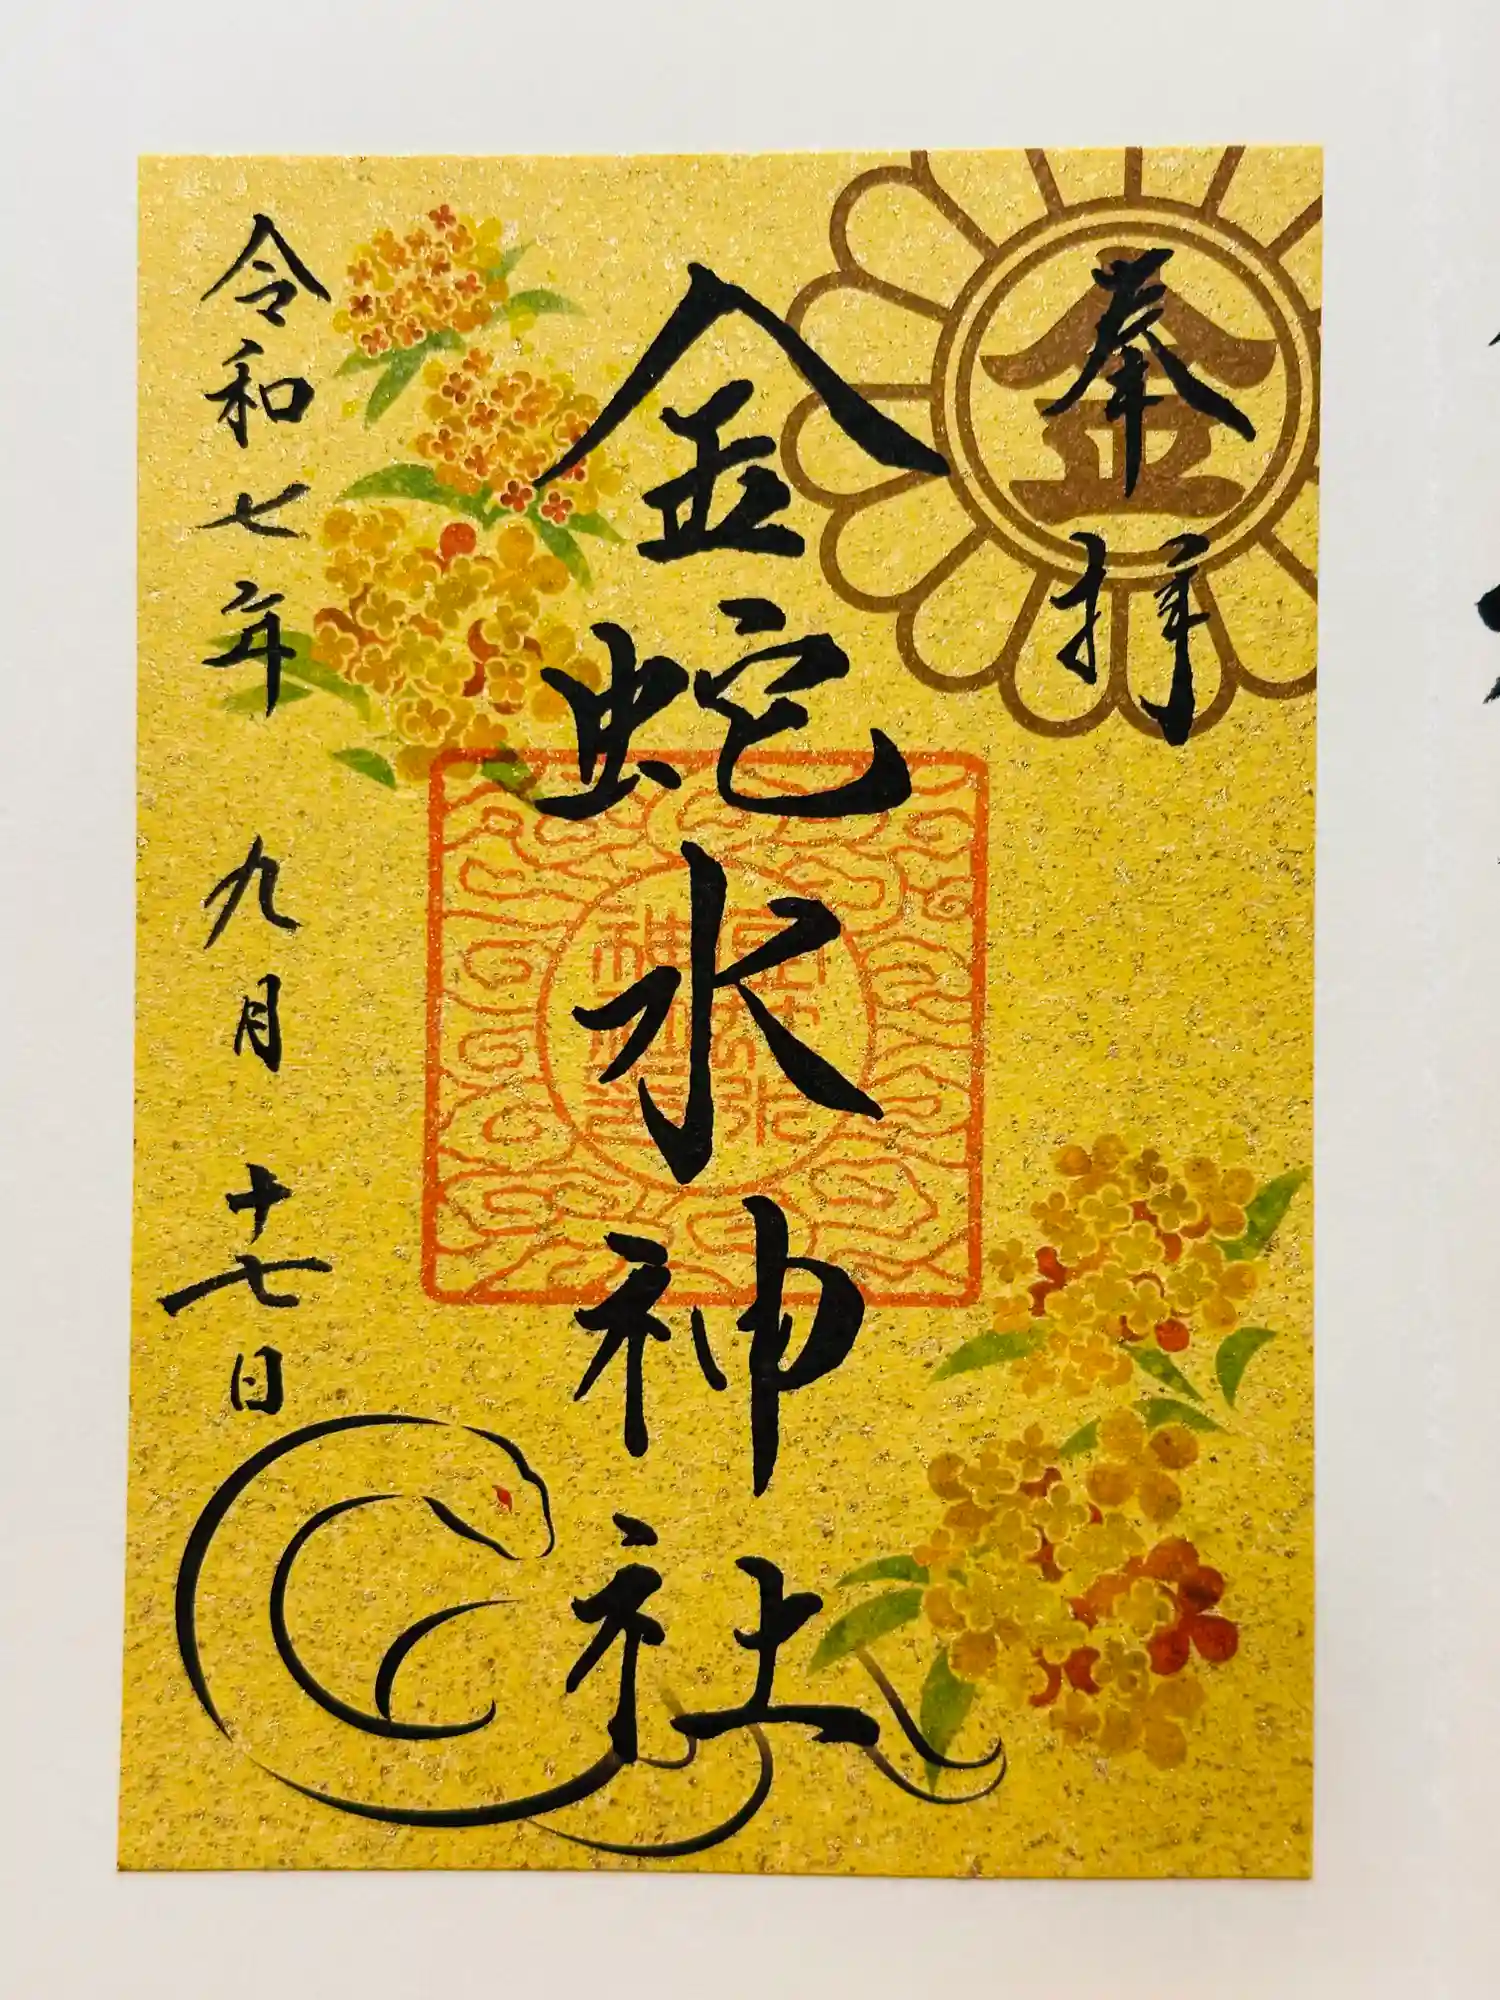 奉拝
金
金蛇水神社
令和七年 九月 十七日